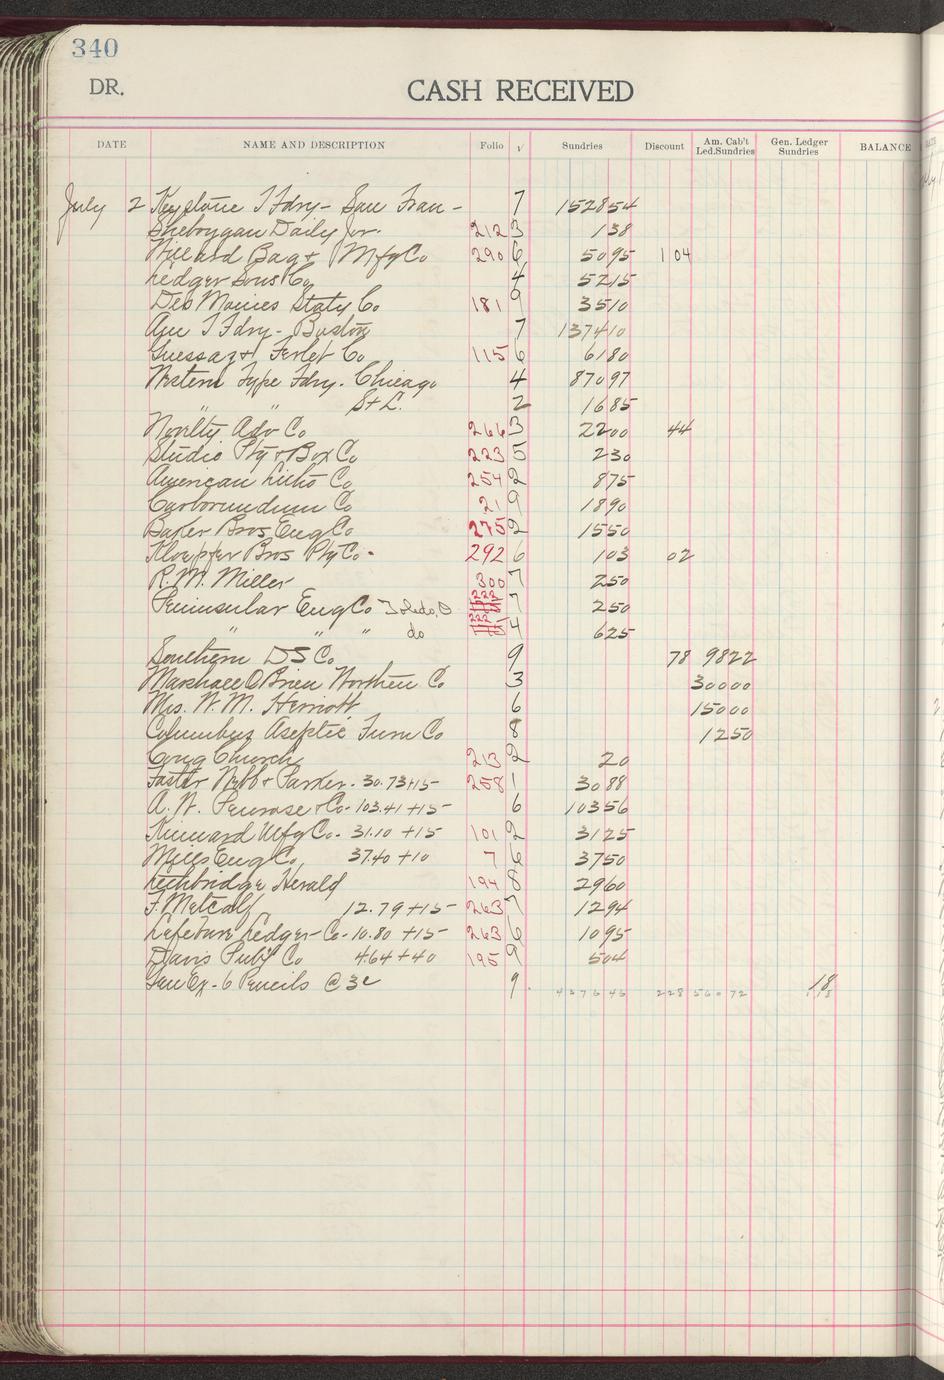 340
DR.
CASH RECEIVED
DATE NAME AND DESCRIPTION Folio √ Sundries Discount Am. Cab't Led.Sundries Gen. Ledger Sundries BALANCE
July 2 Keystone T Fdry - San Fran - 7 152854
Sheboygan Daily Jor. 212 3 138
Hilland Bag & Mfg Co 290 6 5095 104
Ledger Sons Co 4 5215
Des Moines Staty Co 181 9 3510
Am T Fdry - Boston 7 137410
Guessaz & Ferlet Co 115 6 6180
Western Type Fdry. Chicago 4 87097
" " St L. 2 1685
Novelty Adv Co 266 3 2200 44
Studio Ptg & Box Co 223 5 230
American Litho Co 254 2 875
Carborundum Co 21 9 1890
Baker Bros Eng Co 275 2 1550
Kloepfer Bros Ptg Co - 292 6 103 02
R. M. Miller 300 7 250
Peninsular Eng Co Toledo, O 222 7 250
" " " do 222 4 625
Southern DS Co 9 78 9822
Marshall O Brien Northen Co 3 30000
Mrs. W. M. Herriott 6 15000
Columbus Aseptic Furn Co 8 1250
Cong Church 213 2 20
Foster Webb & Parker - 30.73+15 - 258 1 3088
A. W. Penrose & Co - 103.41 +15 - 6 10356
Kinnard Mfg Co - 31.10 +15 101 2 3125
Mills Eng Co, 37.40 +10 7 6 3750
Lethbridge Herald 194 8 2960
F. Metcalf 12.79 +15 - 263 7 1294
Lefebvre Ledger Co - 10.80 +15 - 263 6 1095
Davis Pub'g Co 4.64 + 40 195 9 504
Gen Ex - 6 Pencils @ 3c 9 18
4376 45 228 560 72 18